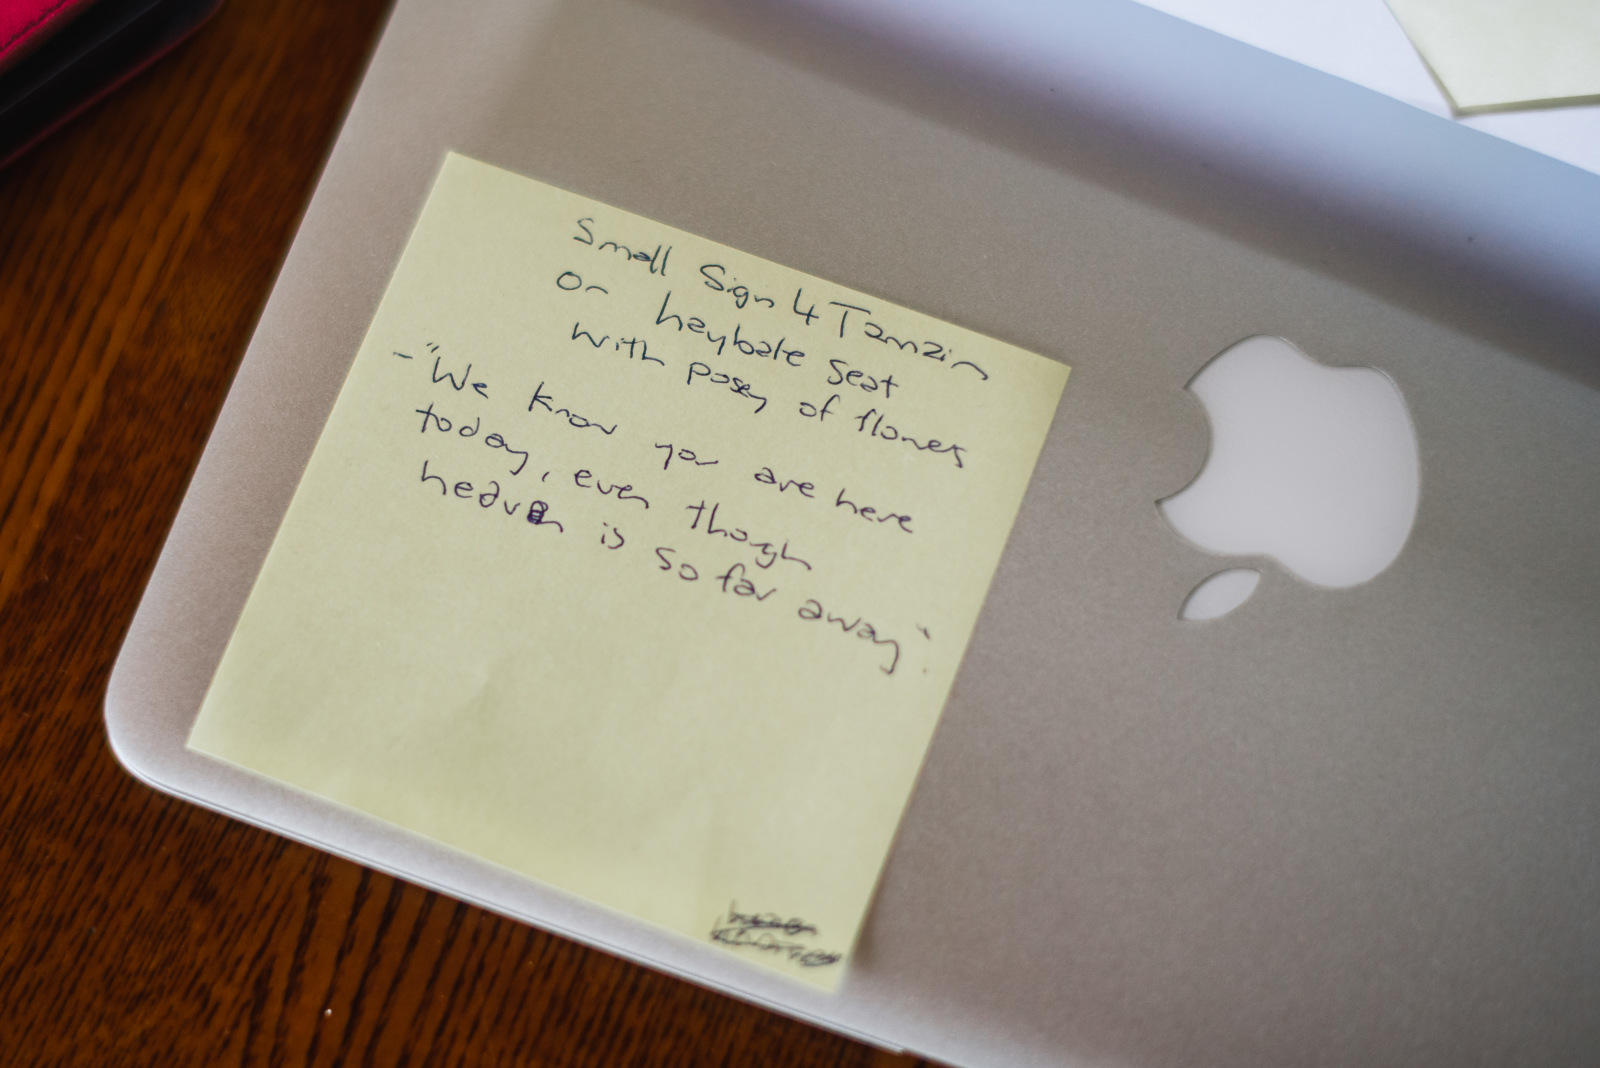 Small Sign 4 Tamzin
on haybale seat
with posey of flowers
- "We know you are here
today, even though
heaven is so far away".